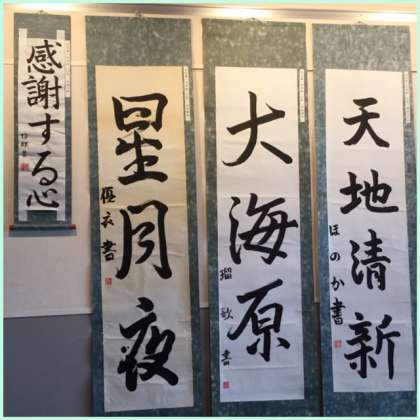 天地清新
ほのか書
大海原
瑠歌書
星月夜
優衣書
感謝する心